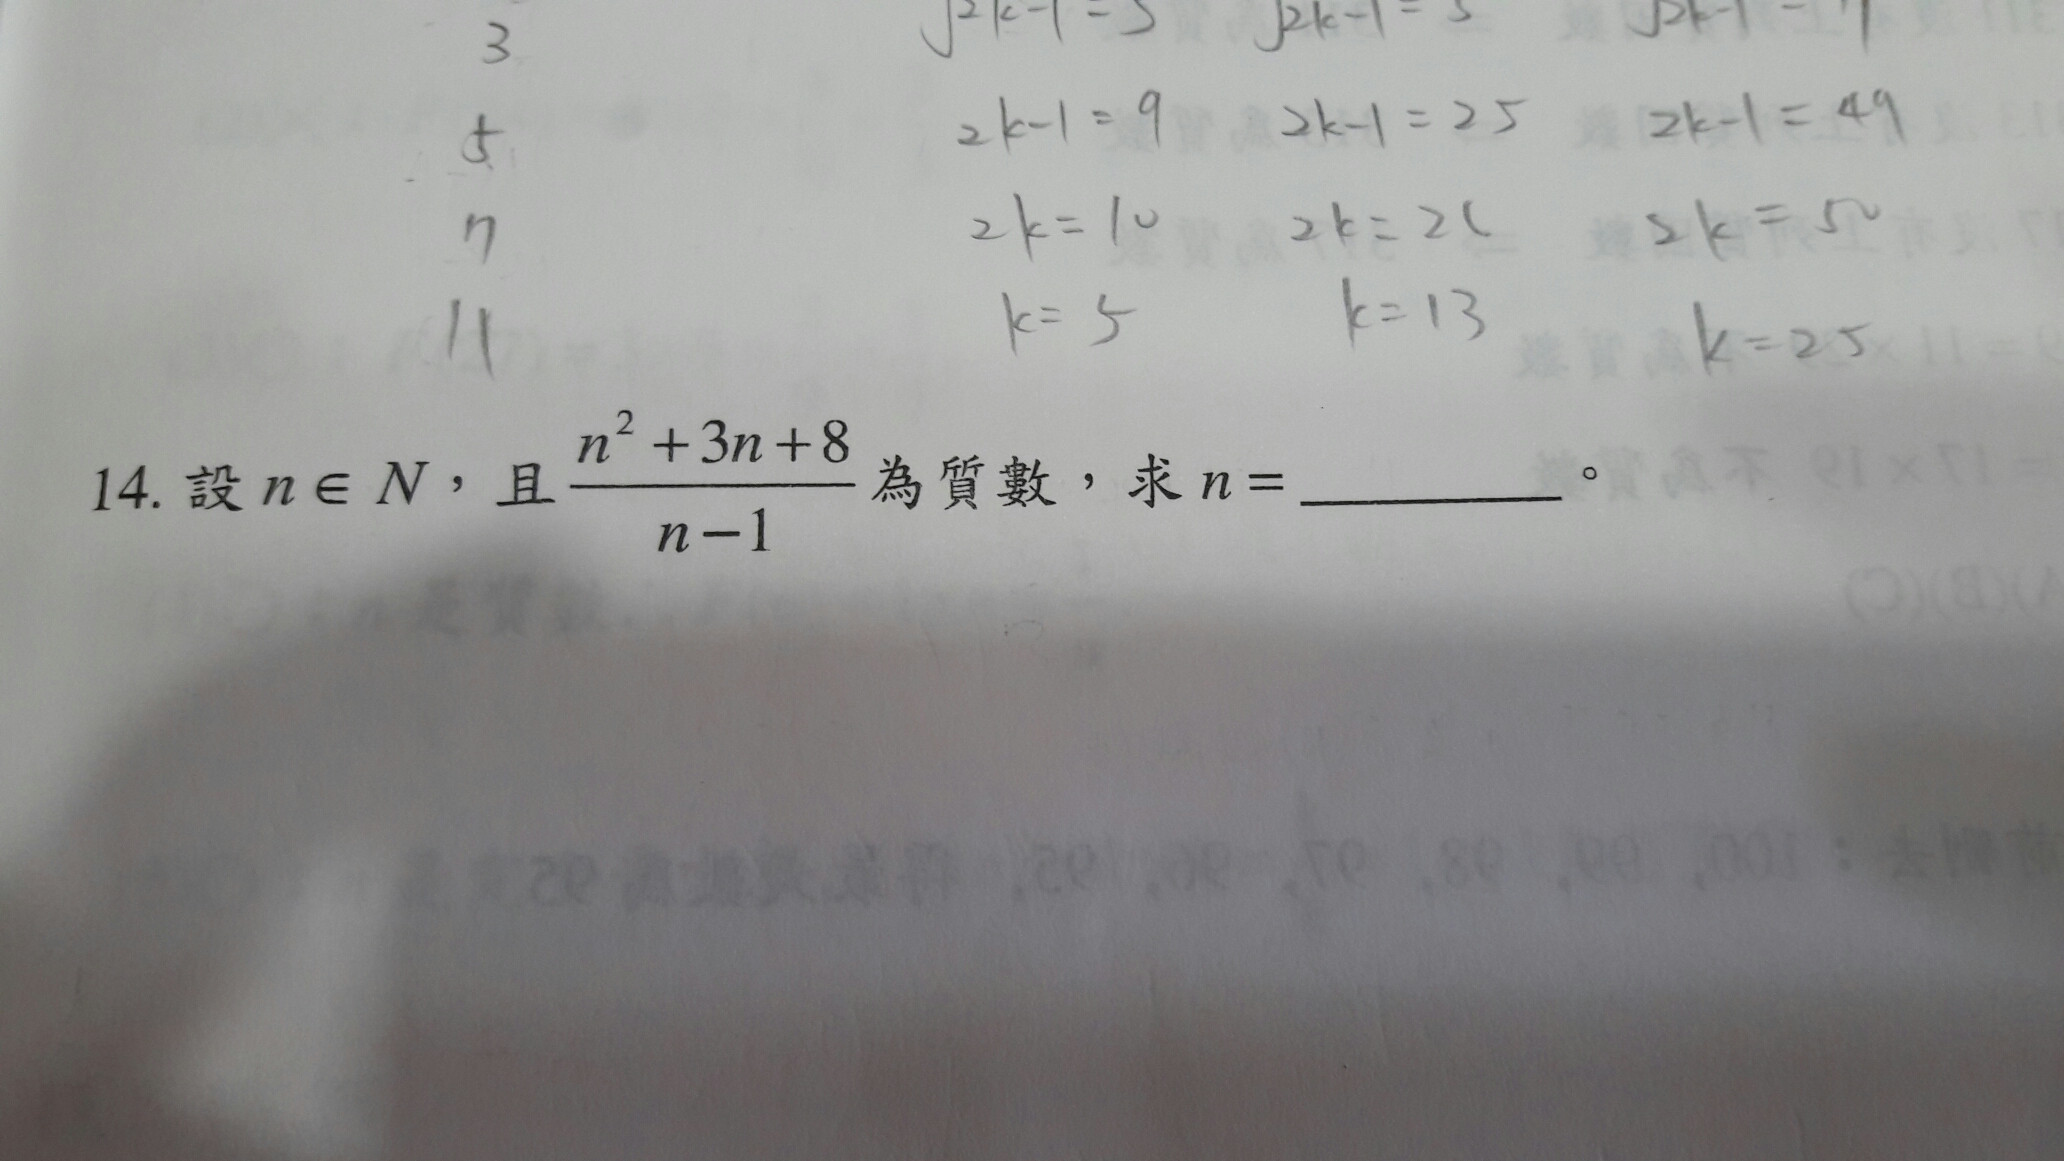 3
5
7
11
√2k-1 = 3 √2k-1 = 5 √2k-1 = 7
2k-1 = 9 2k-1 = 25 2k-1 = 49
2k = 10 2k = 26 2k = 50
k = 5 k = 13 k = 25
14. 設 n ∈ N，且 (n²+3n+8)/(n-1) 為質數，求 n = ______。